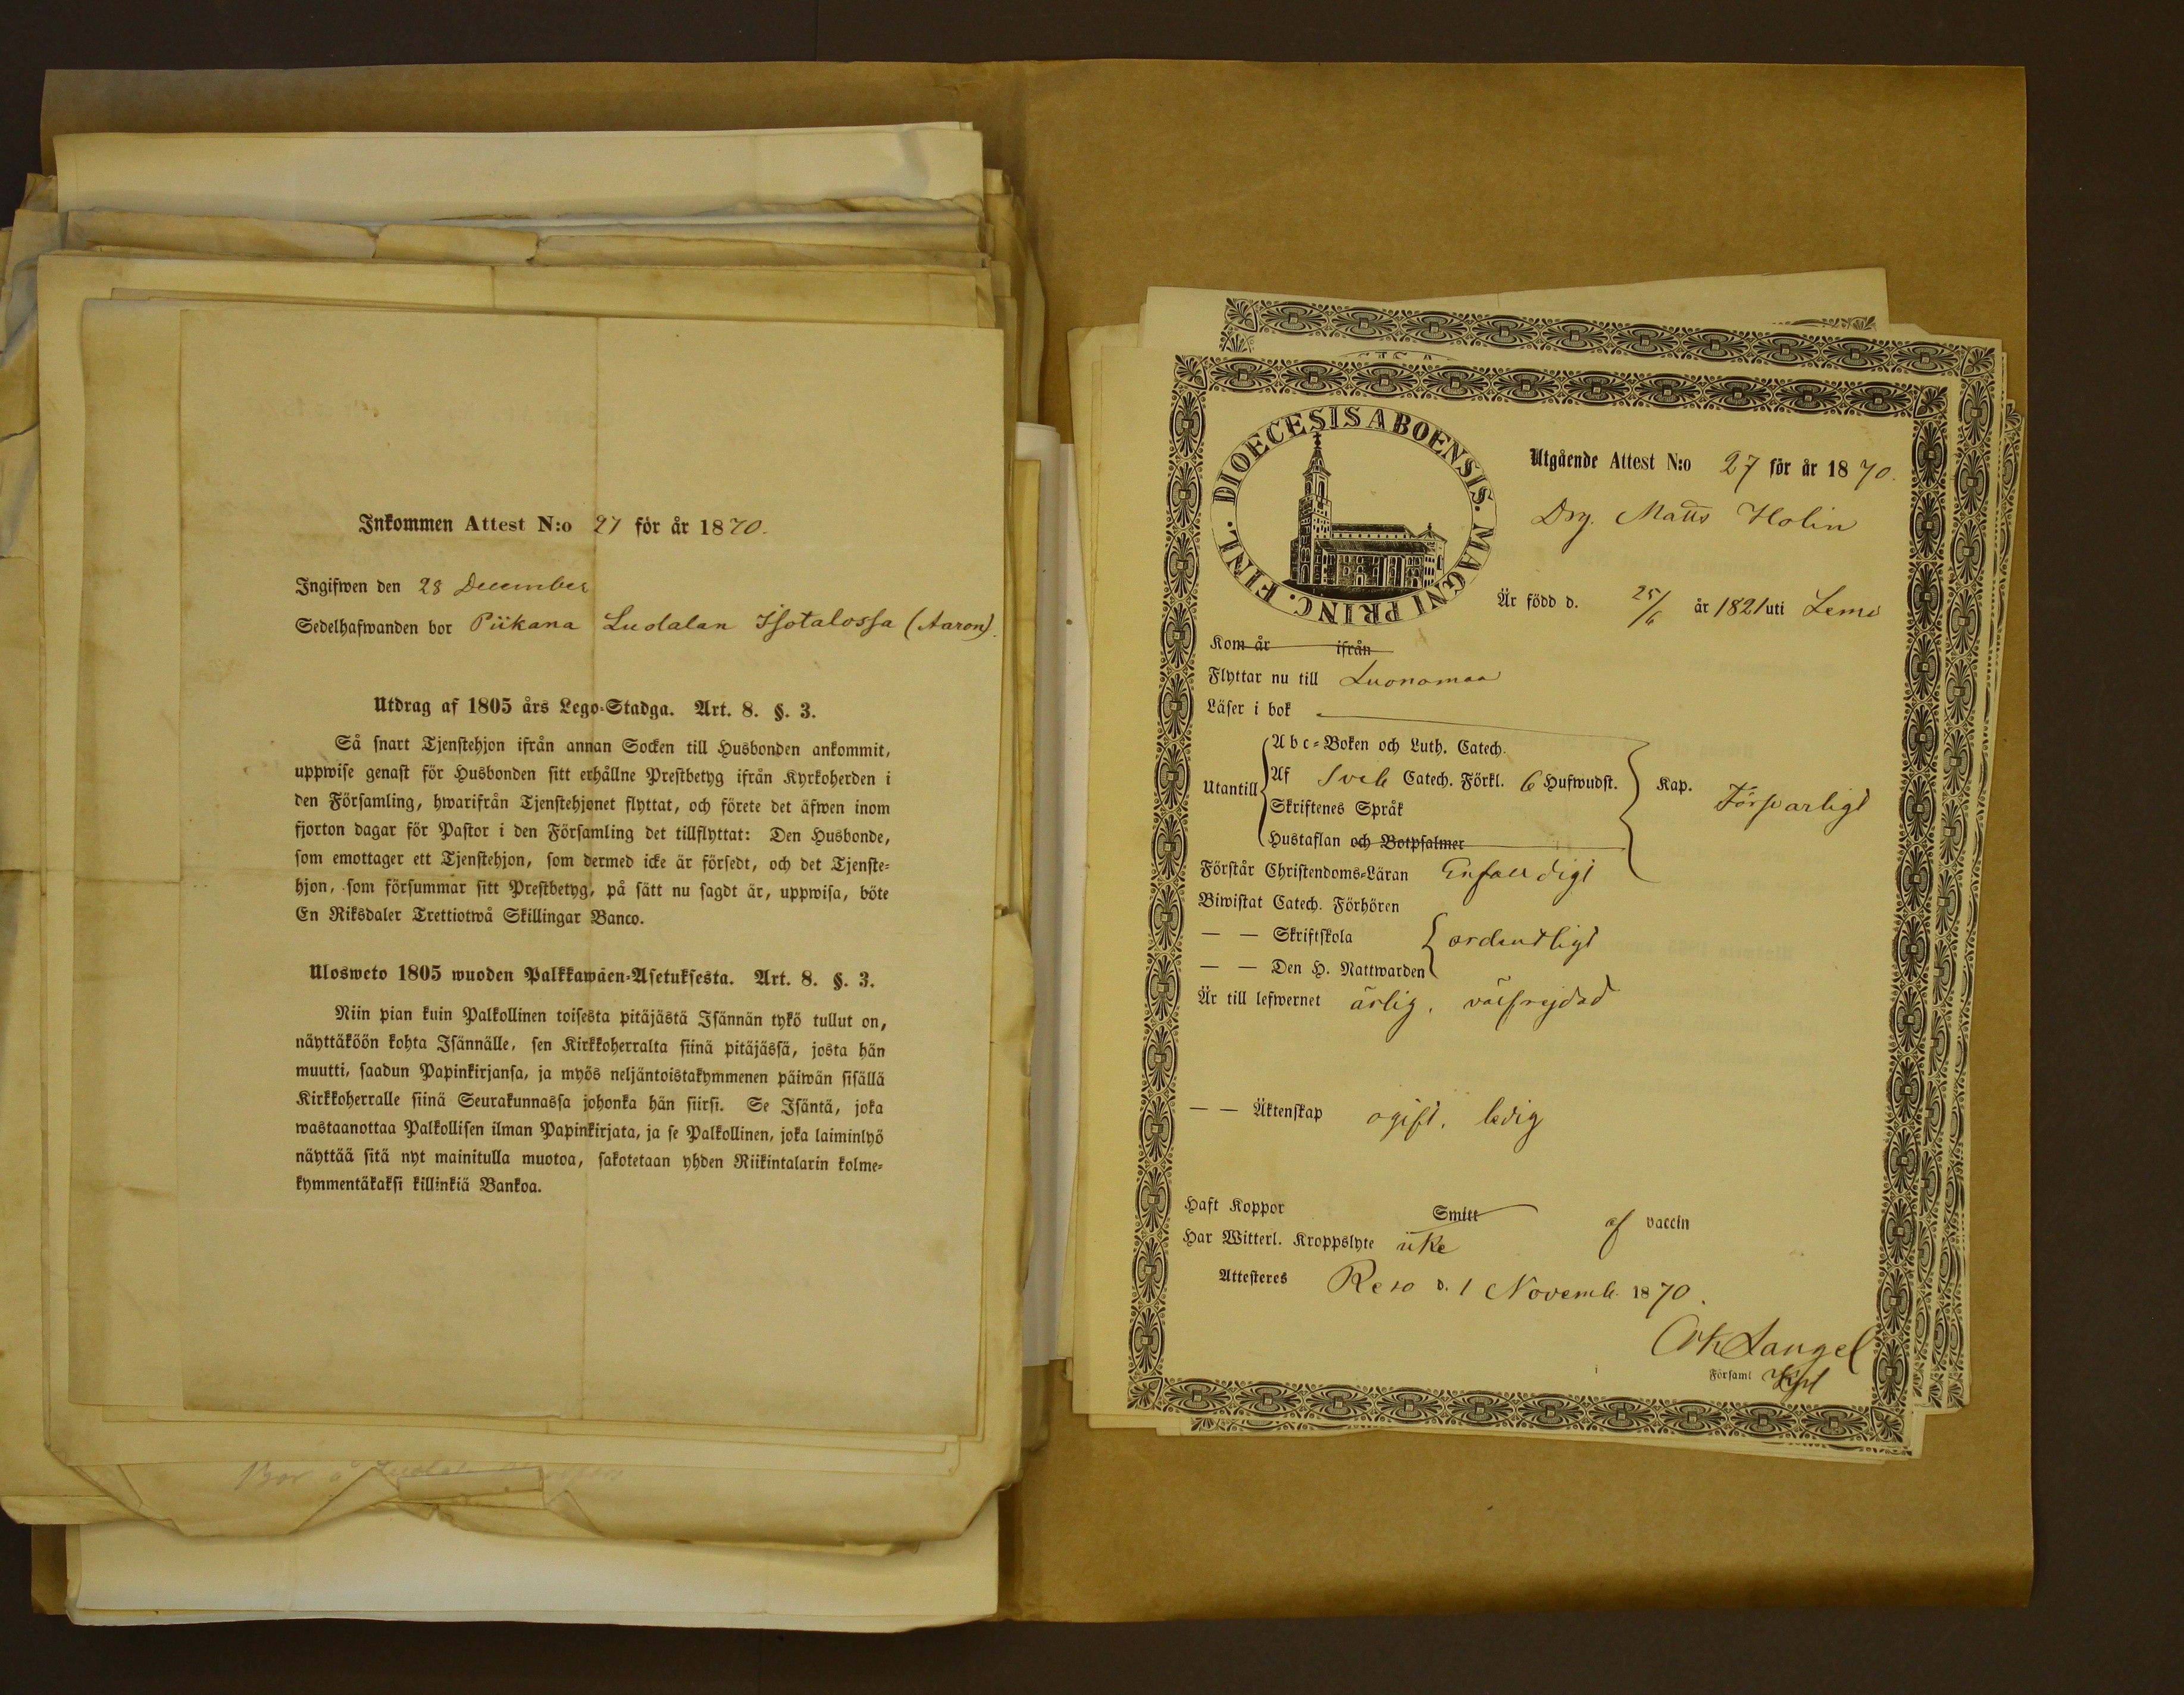 Inkommen Attest N:o 27 för år 1870.
Ingifwen den 28 December
Sedelhafwanden bor Piikana Luolalan Isotalossa (Aaron).
Utdrag af 1805 års Lego-Stadga. Art. 8. §. 3.
Så snart Tjenstehjon ifrån annan Socken till Husbonden ankommit,
uppwise genast för Husbonden sitt erhållne Prestbetyg ifrån Kyrkoherden i
den Församling, hwarifrån Tjenstehjonet flyttat, och förete det äfwen inom
fjorton dagar för Pastor i den Församling det tillflyttat: Den Husbonde,
som emottager ett Tjenstehjon, som dermed icke är försedt, och det Tjenste-
hjon, som försummar sitt Prestbetyg, på sätt nu sagdt är, uppwisa, böte
En Riksdaler Trettiotwå Skillingar Banco.
Ulosweto 1805 wuoden Palkkawäen-Asetuksesta. Art. 8. §. 3.
Niin pian kuin Palkollinen toisesta pitäjästä Isännän tykö tullut on,
näyttäköön kohta Isännälle, sen Kirkkoherralta siinä pitäjässä, josta hän
muutti, saadun Papinkirjansa, ja myös neljäntoistakymmenen päiwän sisällä
Kirkkoherralle siinä Seurakunnassa johonka hän siirsi. Se Isäntä, joka
wastaanottaa Palkollisen ilman Papinkirjata, ja se Palkollinen, joka laiminlyö
näyttää sitä nyt mainitulla muotoa, sakotetaan yhden Riikintalarin kolme-
kymmentäkaksi killinkiä Bankoa.
Bor å
DIOECESIS ABOENSIS. MAGNI PRINC. FINL.
Utgående Attest N:o 27 för år 1870.
Drg. Matts Holin
Är född d. 25/6 år 1821 uti Lemo
Kom år ifrån
Flyttar nu till Luonomaa
Läser i bok
Utantill
Abc-Boken och Luth. Catech.
Af Sveb Catech. Förkl. 6 Hufwudst. Kap. Försvarligt
Skriftenes Språk
Hustaflan och Botpsalmer
Förstår Christendoms-Läran Enfaldigt
Biwistat Catech. Förhören
— — Skriftskola ordentligt
— — Den H. Nattwarden
Är till lefwernet ärlig, välfrejdad
— — Äktenskap ogift, ledig
Haft Koppor Smitt af vaccin
Har Witterl. Kroppslyte icke
Attesteres Reso d. 1 Novemb. 1870.
Langel
Församl Kpl